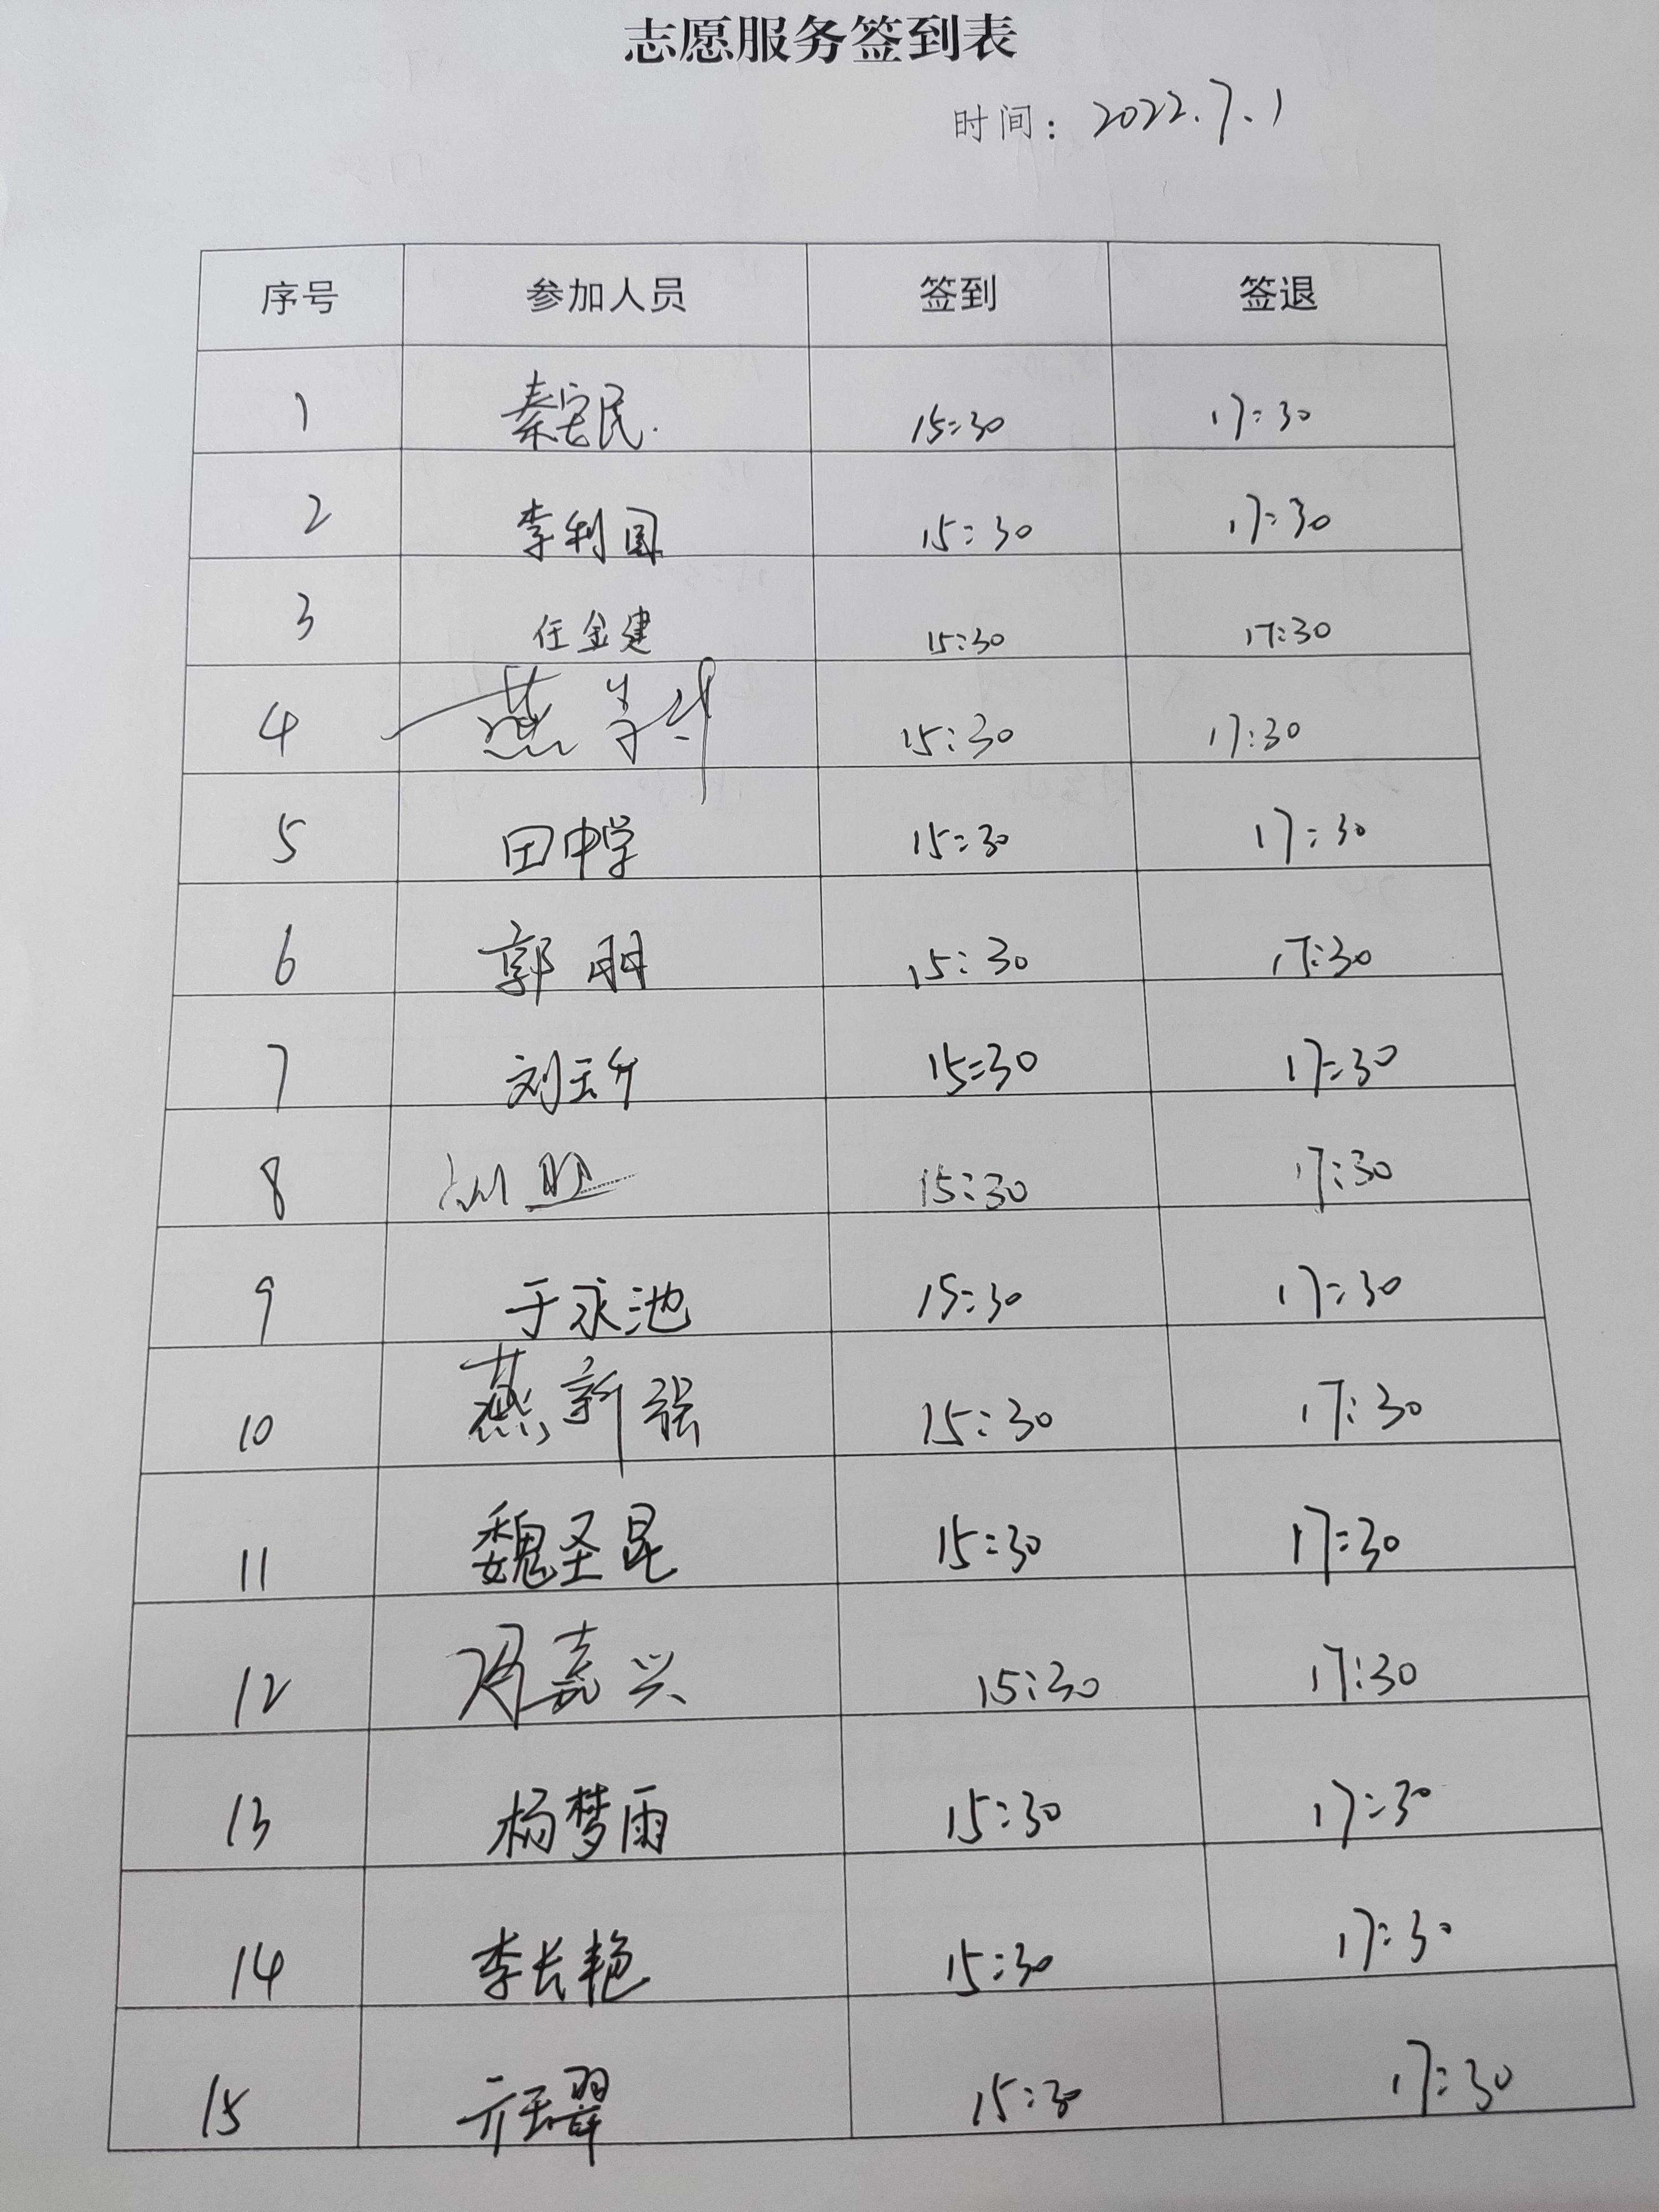 志愿服务签到表
时间: 2022.7.1
序号 参加人员 签到 签退
1 秦宝民 15:30 17:30
2 李利国 15:30 17:30
3 任金建 15:30 17:30
4 燕 15:30 17:30
5 田中学 15:30 17:30
6 郭朋 15:30 17:30
7 刘玉 15:30 17:30
8 15:30 17:30
9 于永池 15:30 17:30
10 燕新强 15:30 17:30
11 魏圣昆 15:30 17:30
12 周嘉兴 15:30 17:30
13 杨梦雨 15:30 17:30
14 李长艳 15:30 17:30
15 亓玉翠 15:30 17:30